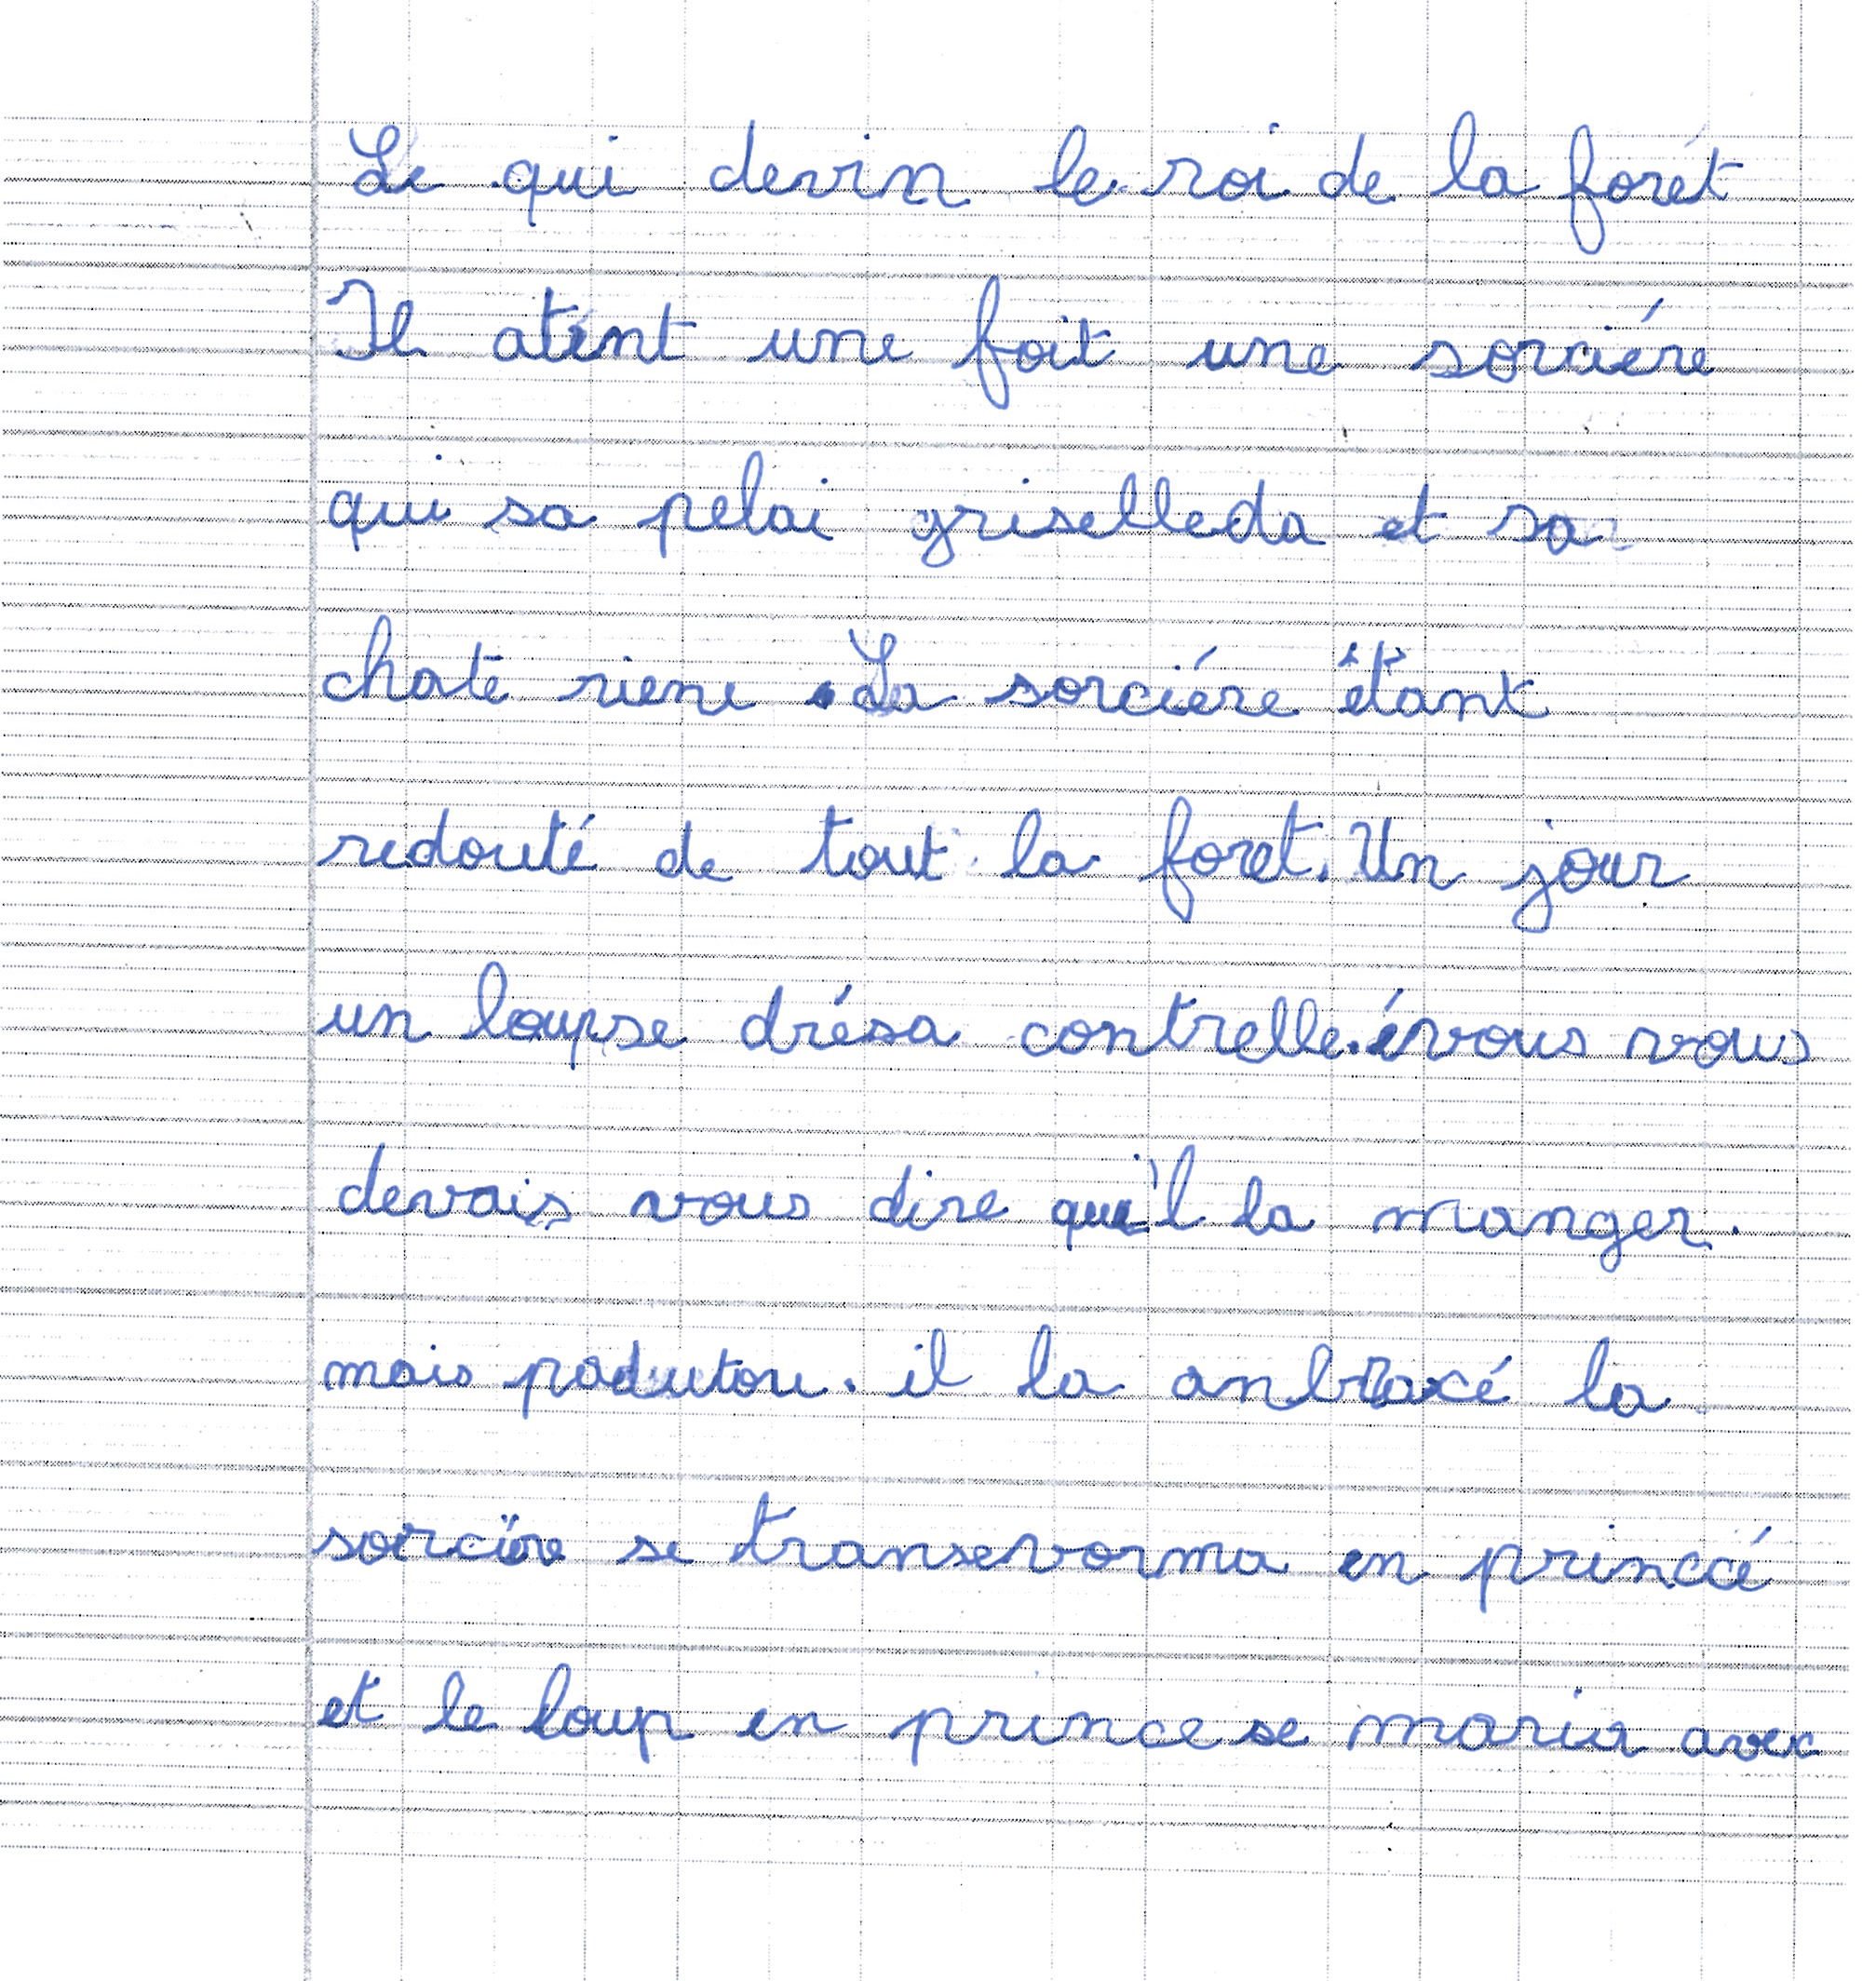 Le qui devin le roi de la forét
Il atént une foit une sorciére
qui sa pelai griselleda et sa
chate riene. La sorciére étant
redouté de tout la foret. Un jour
un loupse drésa contrelle. évous vous
devais vous dire qu'il la manger.
mais padutou. il la anbracé la
sorciére se transevorma en princcé
et le loup en princese maria avec